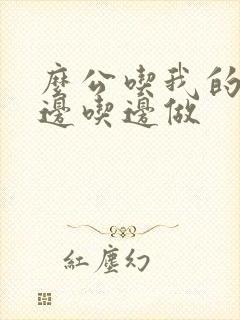 麼公喫我的
邊喫邊做
紅塵幻